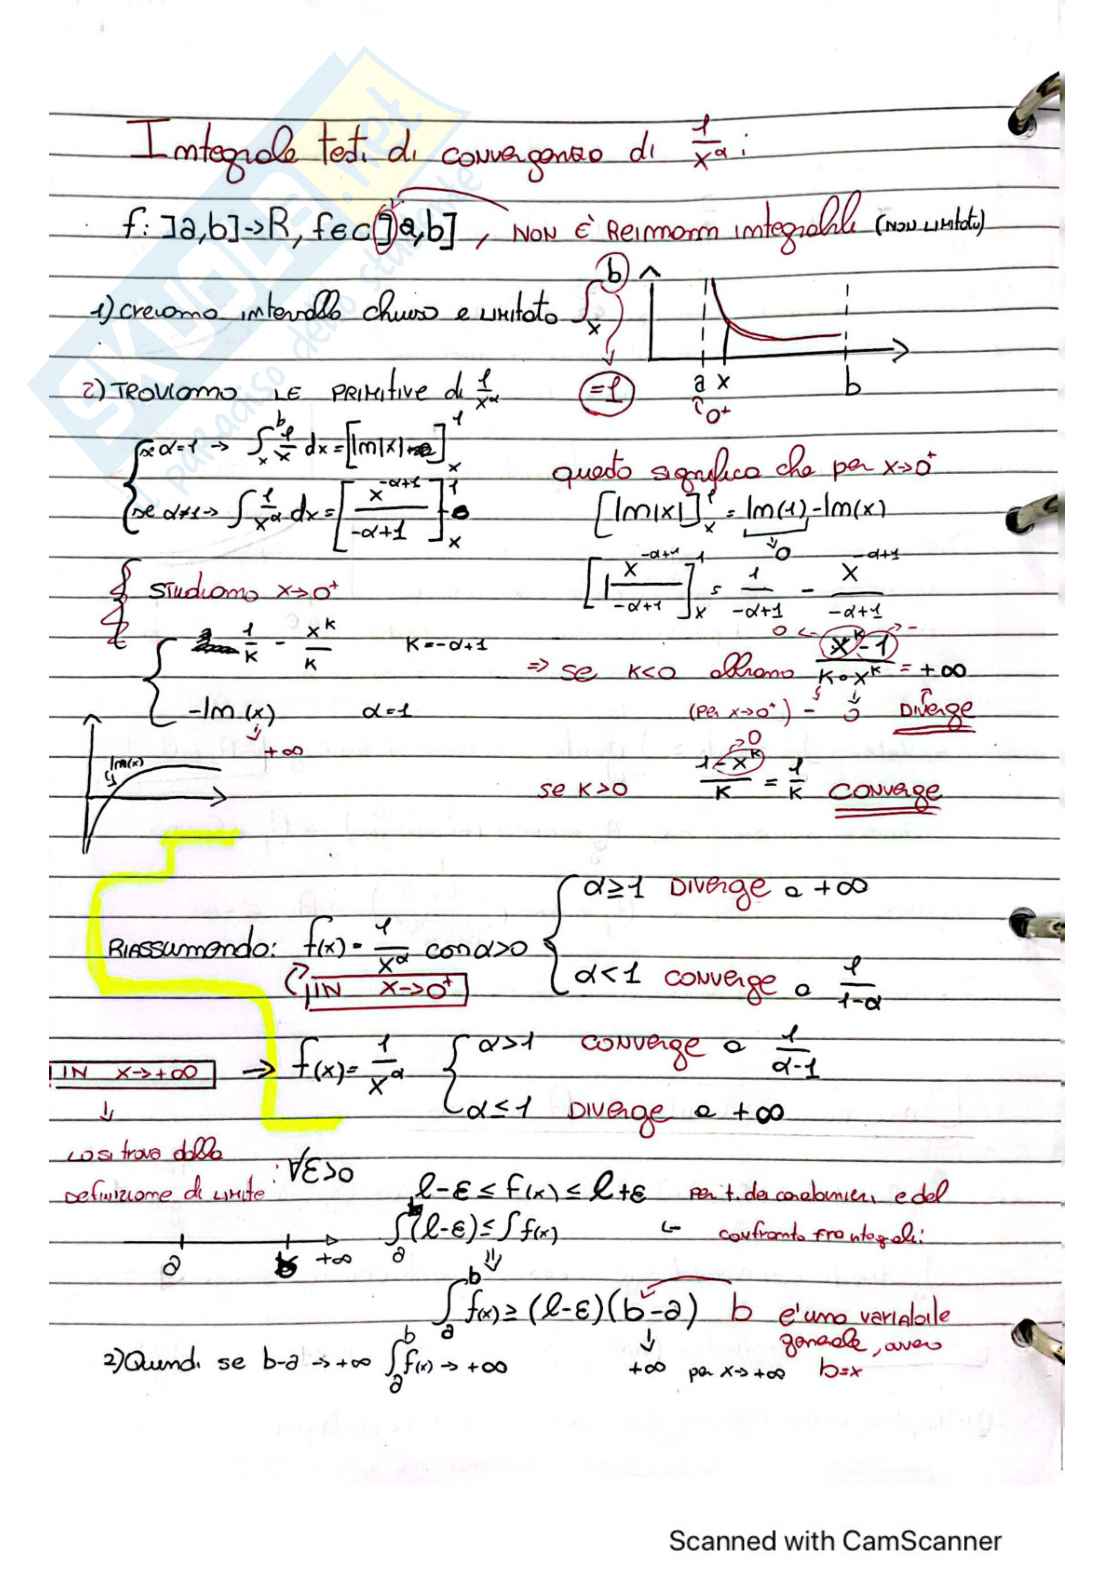 Integrale test di convergenza di 1/x^α :
f: ]a,b]->R, f∈C(]a,b], NON È Reimann integrabile (NON Limitato)
1) creiamo intervallo chiuso e limitato ∫_x^b
=1
a x b
0⁺
2) TROVIAMO LE PRIMITIVE di 1/x^α
se α=1 → ∫_x^b 1/x dx = [ln|x|]_x^1
se α≠1 → ∫ 1/x^α dx = [x^(-α+1)/(-α+1)]_x^1
questo significa che per x→0⁺
[ln|x|]_x^1 = ln(1) - ln(x)
0
[x^(-α+1)/(-α+1)]_x^1 = 1/(-α+1) - x^(-α+1)/(-α+1)
STudiamo x→0⁺
1/K - x^K/K K=-α+1
-ln(x) α=1
+∞
ln(x)
=> se K<0 abbiamo (x^K-1)/(K∘x^K) = +∞
0 ← → -
(Per x→0⁺) - DIVerge
se K>0 (1-x^K)/K = 1/K CONVerge
→0
RIASSUMENDO: f(x)=1/x^α con α>0
α≥1 DIVerge a +∞
α<1 CONVerge a 1/(1-α)
IN x→0⁺
IN x→+∞ → f(x)=1/x^α
α>1 CONVerge a 1/(α-1)
α≤1 DIVerge a +∞
così trova dalla
Definizione di Limite : ∀ε>0
l-ε ≤ f(x) ≤ l+ε Per t. dei carabinieri e del
∫_a^b (l-ε) ≤ ∫f(x) ← confronto fra integrali:
a b +∞
∫_a^b f(x) ≥ (l-ε)(b-a) b è una variabile
generale, avero
+∞ per x→+∞ b=x
2) Quindi se b-a → +∞ ∫_a^b f(x) → +∞
SKUOLA.net
il paradiso dello studente
Scanned with CamScanner